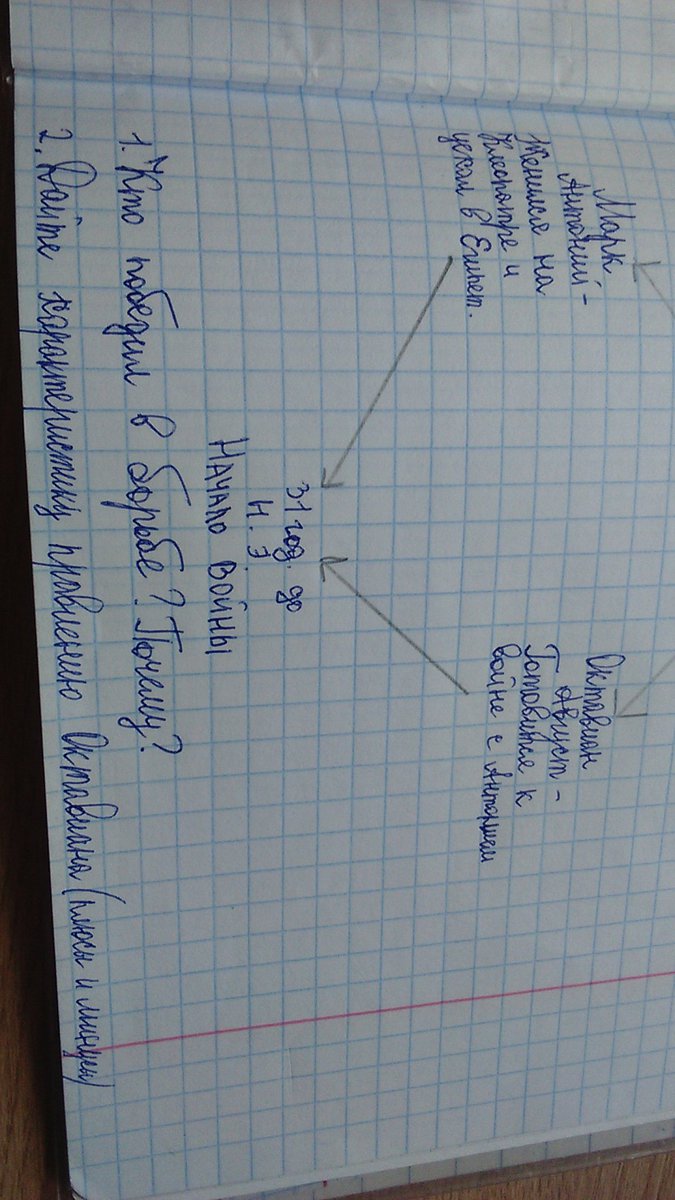 Марк
Антоний -
Женился на
Клеопатре и
уехал в Египет.
Октавиан
Август -
Готовится к
войне с Антонием
31 год. до
н. э
Начало войны
1. Кто победил в борьбе? Почему?
2. Дайте характеристику правлению Октавиана (плюсы и минусы)